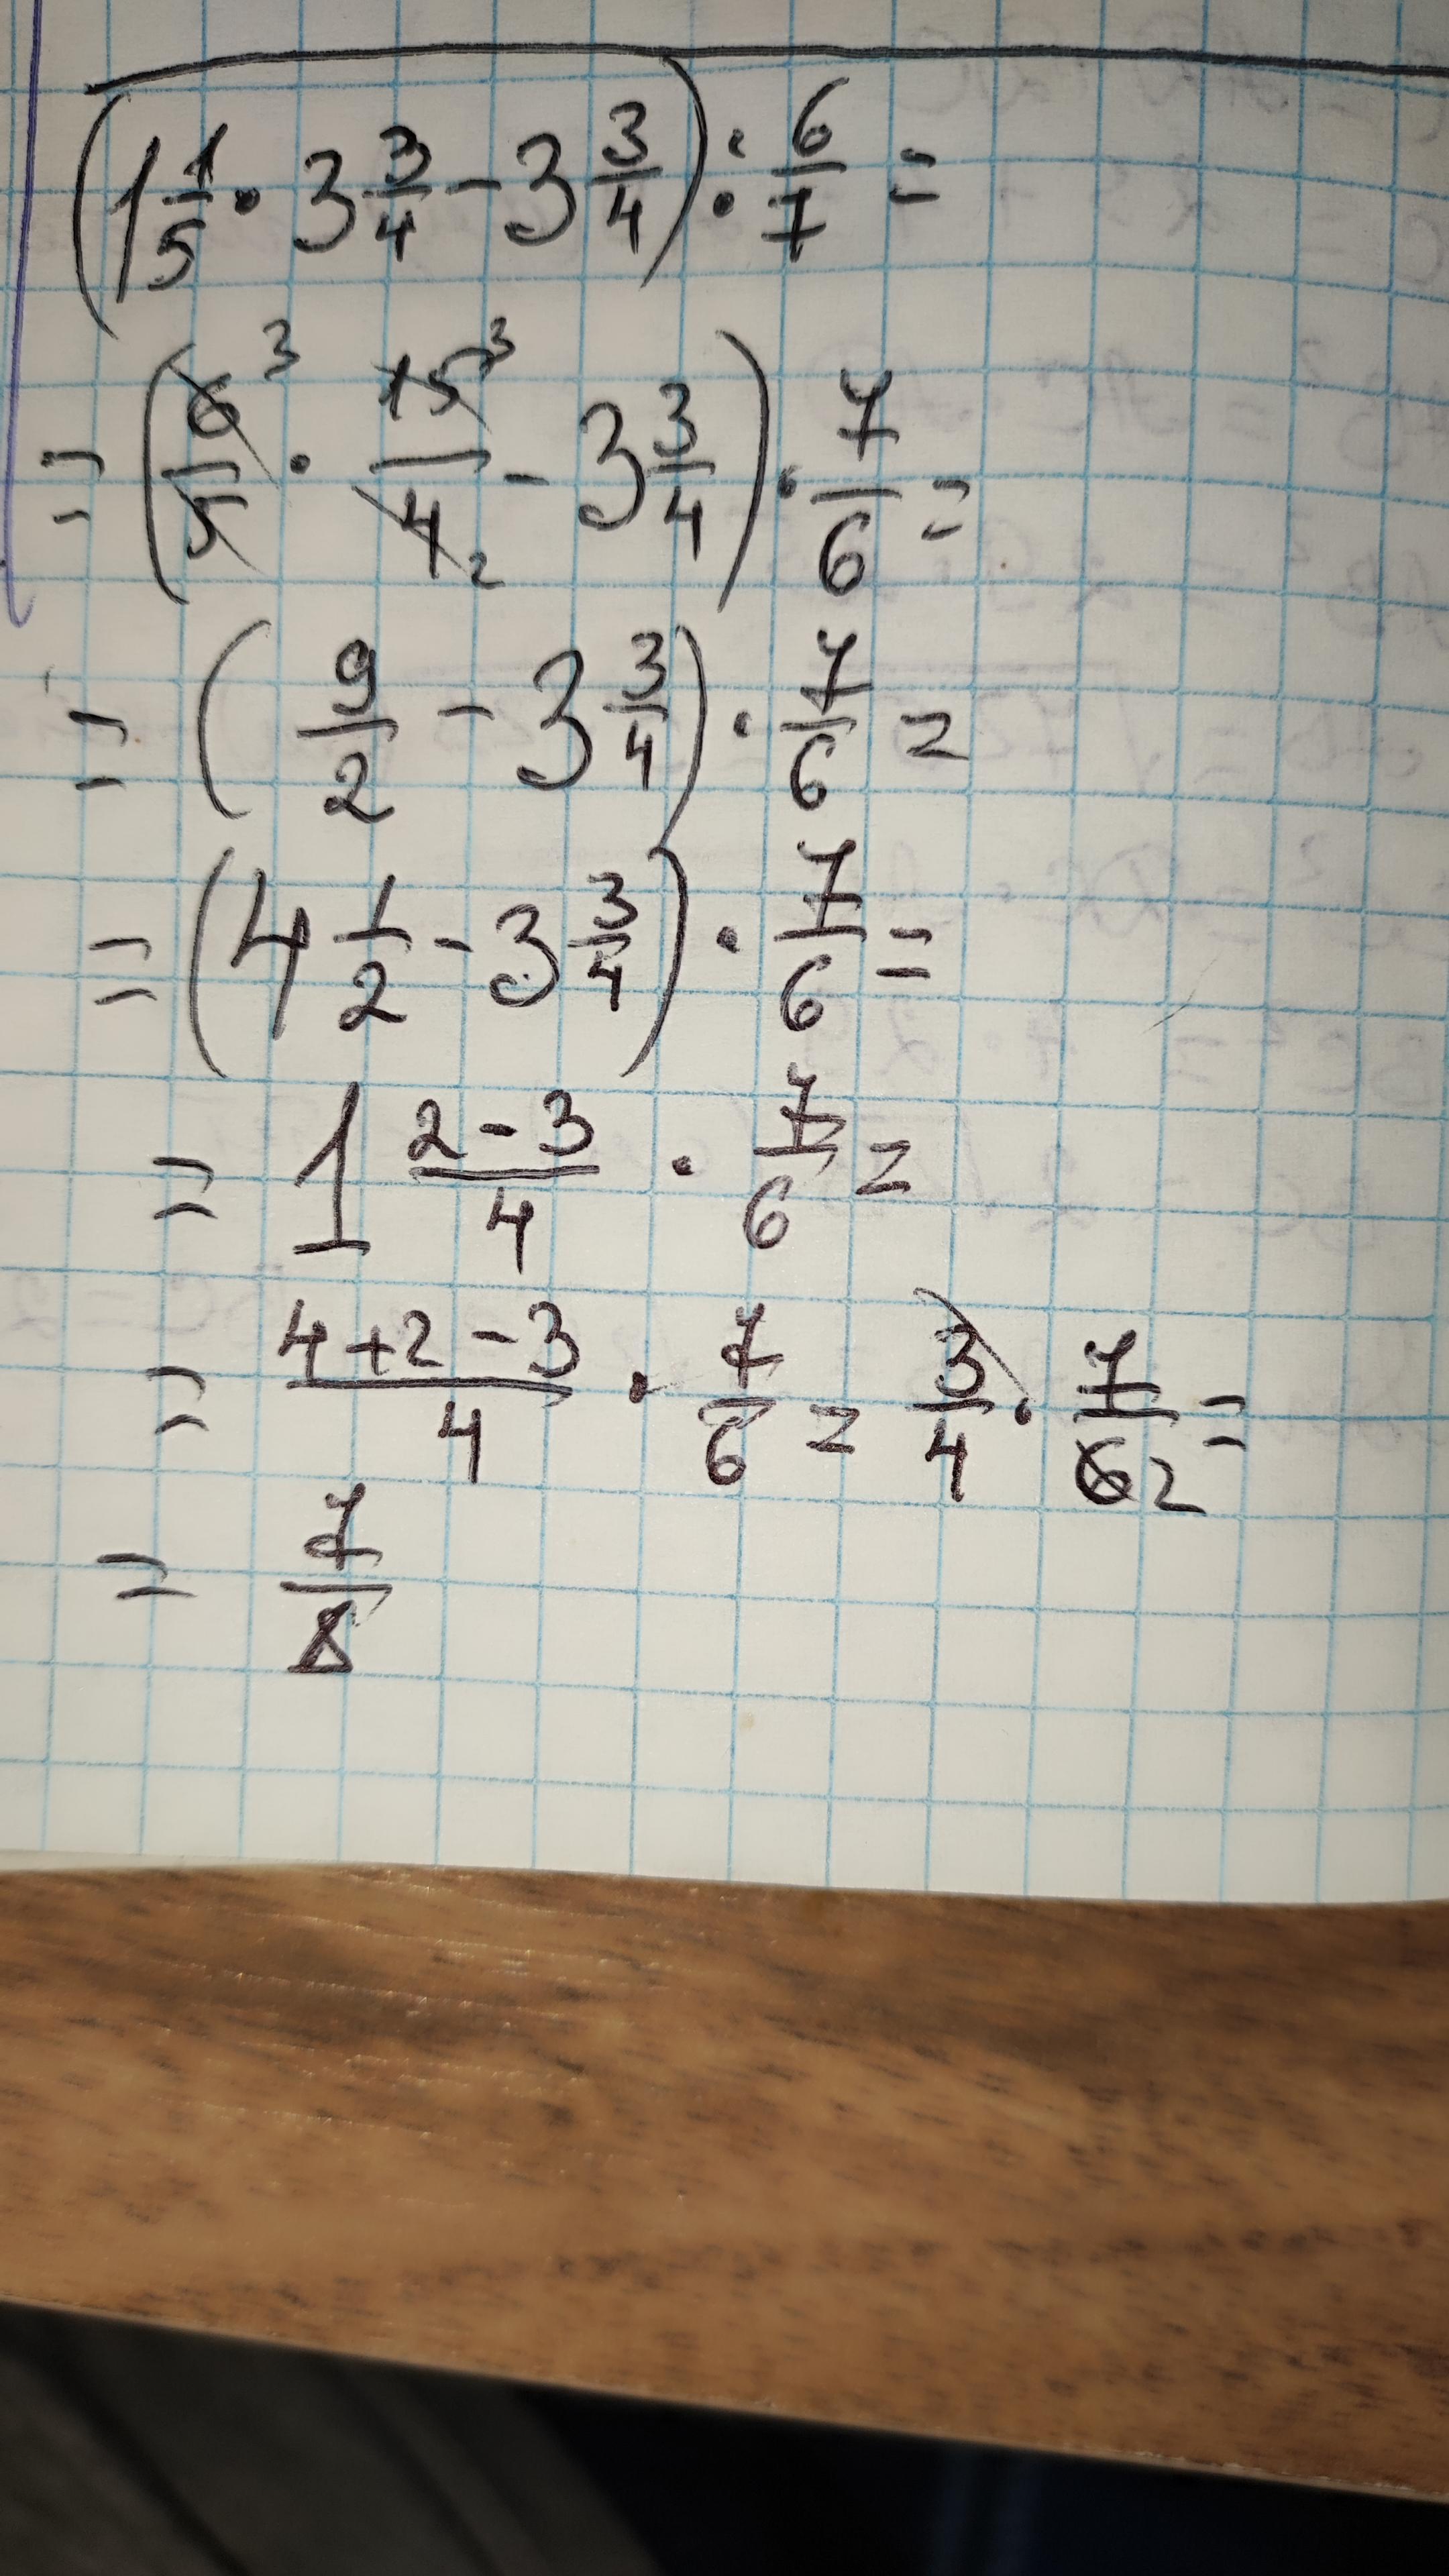 (1 1/5 · 3 3/4 - 3 3/4) : 6/7 =
= (6/5 3 · 15/4 3 2 - 3 3/4) · 7/6 =
= (9/2 - 3 3/4) · 7/6 =
= (4 1/2 - 3 3/4) · 7/6 =
= 1 2-3/4 · 7/6 =
= 4+2-3/4 · 7/6 = 3/4 · 7/6 2 =
= 7/8